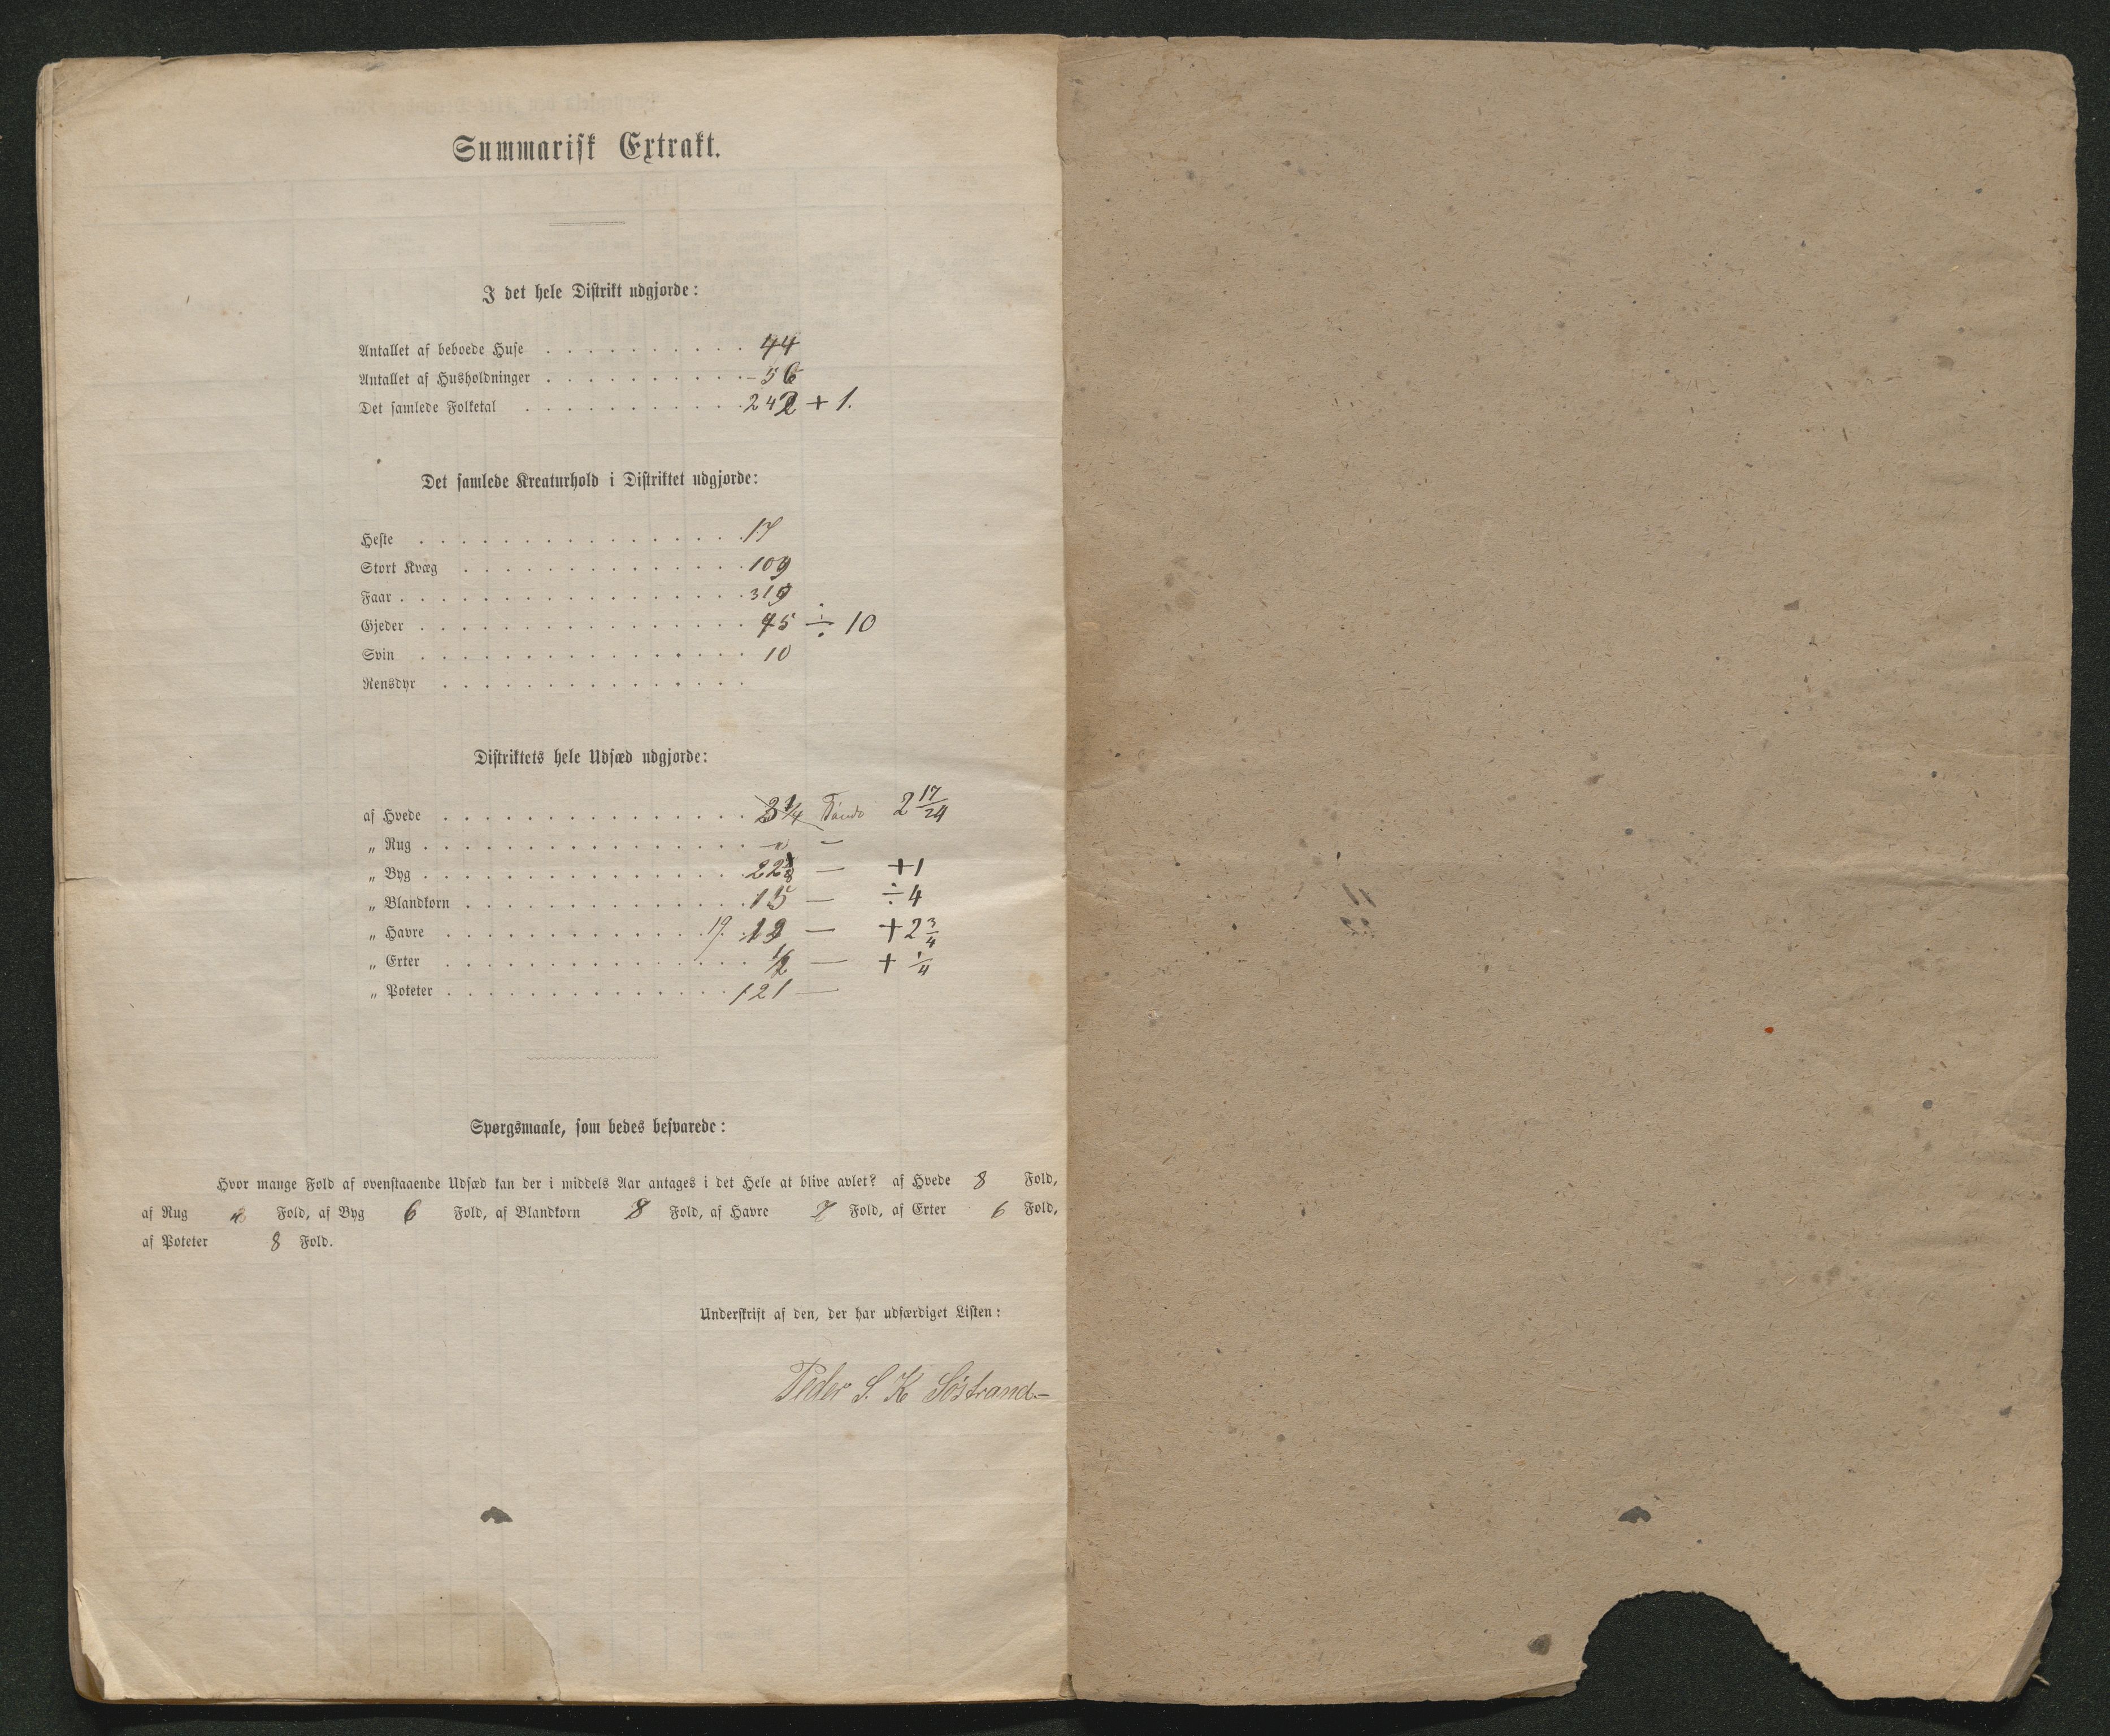 Summarisk Extrakt.
I det hele Distrikt udgjorde:
Antallet af beboede Huse . . . . . . . . . . 44
Antallet af Husholdninger . . . . . . . . . . 56
Det samlede Folketal . . . . . . . . . . . 242 + 1.
Det samlede Kreaturhold i Distriktet udgjorde:
Heste . . . . . . . . . . . . . 17
Stort Kvæg . . . . . . . . . . . 109
Faar . . . . . . . . . . . . . . 319
Gjeder . . . . . . . . . . . . . 45 ÷ 10
Svin . . . . . . . . . . . . . 10
Rensdyr . . . . . . . . . . . .
Distriktets hele Udsæd udgjorde:
af Hvede . . . . . . . . . . . . 3 1/4 2 17/24
„ Rug . . . . . . . . . . . . . „ —
„ Byg . . . . . . . . . . . . . 22 — +1
„ Blandkorn . . . . . . . . . . . 15 — ÷4
„ Havre . . . . . . . . . . . 19. — +2 3/4
„ Erter . . . . . . . . . . . . 1/2 — + 1/4
„ Poteter . . . . . . . . . . . 121 —
Spørgsmaale, som bedes besvarede:
Hvor mange Fold af ovenstaaende Udsæd kan der i middels Aar antages i det Hele at blive avlet? af Hvede 8 Fold,
af Rug „ Fold, af Byg 6 Fold, af Blandkorn 8 Fold, af Havre 7 Fold, af Erter 6 Fold,
af Poteter 8 Fold.
Underskrift af den, der har udfærdiget Listen:
Peder S. K Söstrand